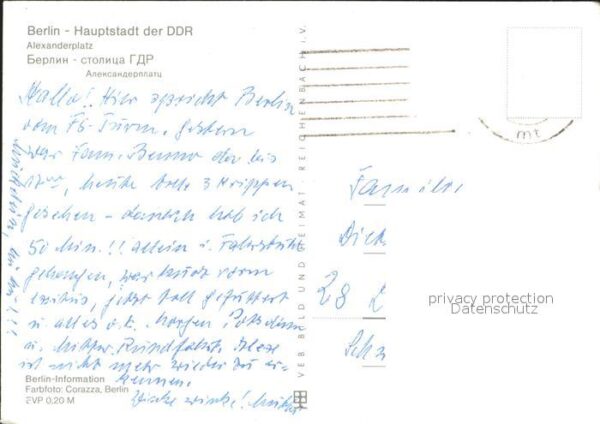 Berlin - Hauptstadt der DDR
Alexanderplatz
Берлин - столица ГДР
Александерплатц
Hallo! Hier spricht Berlin
vom FS-Turm. Gestern
war Fam. Benno da bis
17 ⁰⁰, heute tolle 3 Krippen
gesehen - danach hab ich
50 Min.!! allein i. Fahrstuhl
gehangen, war kurz vorm
Exitus, jetzt toll gefuttert
u. alles o.k. Morgen Potsdam
u. Rundfahrt.
ist nicht mehr wieder zu er-
kennen.
Winke winke!
Berlin-Information
Farbfoto: Corazza, Berlin
EVP 0,20 M
VEB BILD UND HEIMAT REICHENBACH i. V.
mt
Familie
Dick
28 L
Schw
privacy protection
Datenschutz